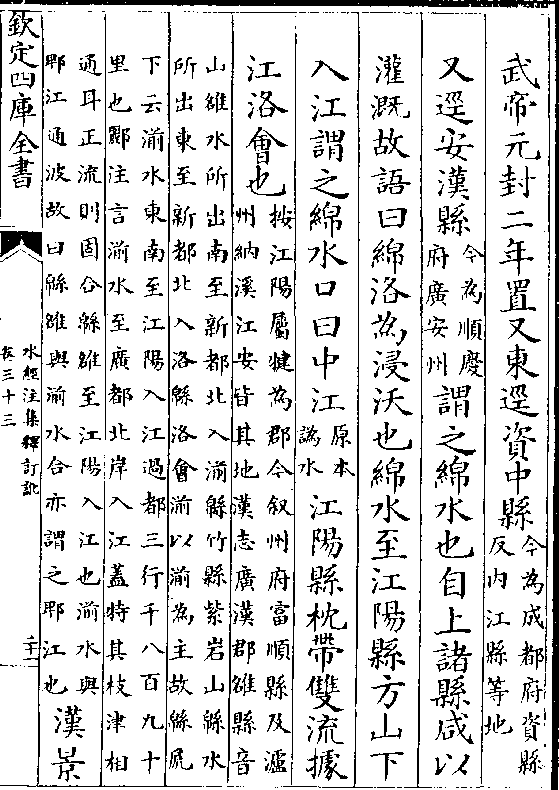 武帝元封二年置又東逕資中縣今為成都府資縣
反内江縣等地
又逕安漢縣今為順慶
府廣安州謂之綿水也自上諸縣咸以
灌溉故語曰綿洛為浸沃也綿水至江陽縣方山下
入江謂之綿水口曰中江原本
譌水江陽縣枕帶雙流據
江洛會也按江陽屬犍為郡今叙州府富順縣及瀘
州納溪江安皆其地漢志廣漢郡雒縣音
山雒水所出南至新都北入湔緜竹縣紫岩山緜水
所出東至新都北入洛緜洛會湔以湔為主故緜虒
下云湔水東南至江陽入江過都三行千八百九十
里也酈注言湔水至廣都北岸入江蓋特其枝津相
通耳正流則固合緜雒至江陽入江也湔水與
郫江通波故曰緜雒與湔水合亦謂之郫江也漢景
欽定四庫全書
水經注集釋訂訛
卷三十三